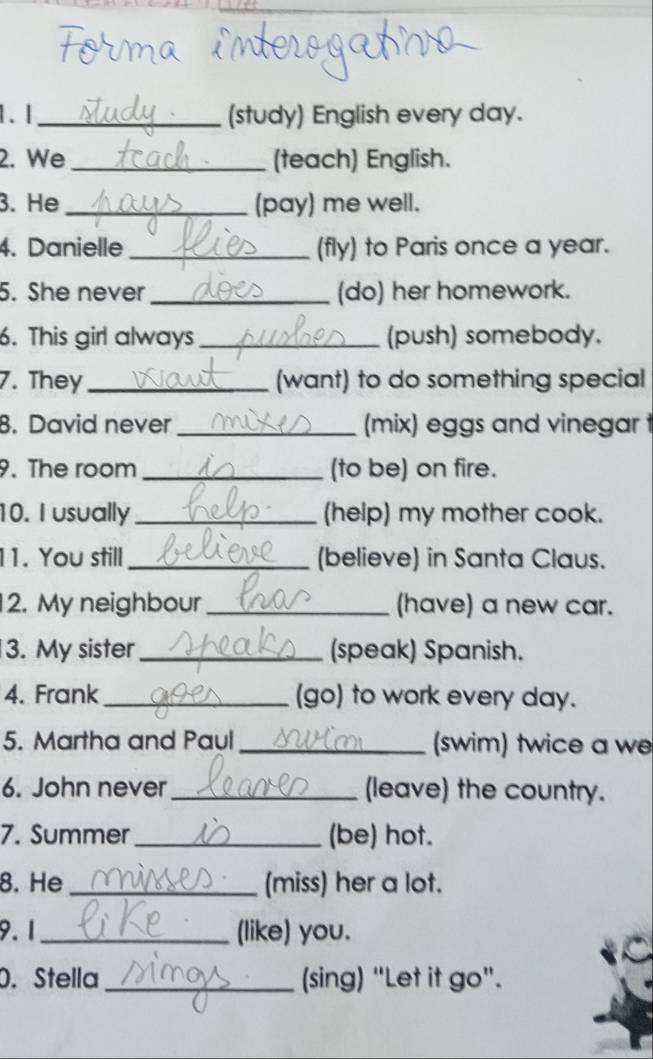 Forma interogativa
1. I study. (study) English every day.
2. We teach. (teach) English.
3. He pays (pay) me well.
4. Danielle flies (fly) to Paris once a year.
5. She never does (do) her homework.
6. This girl always pushes (push) somebody.
7. They want (want) to do something special
8. David never mixes (mix) eggs and vinegar t
9. The room is (to be) on fire.
10. I usually help. (help) my mother cook.
11. You still believe (believe) in Santa Claus.
12. My neighbour has (have) a new car.
13. My sister speaks (speak) Spanish.
4. Frank goes (go) to work every day.
5. Martha and Paul swim (swim) twice a we
6. John never leaves (leave) the country.
7. Summer is (be) hot.
8. He misses. (miss) her a lot.
9. I like (like) you.
0. Stella sings (sing) "Let it go".